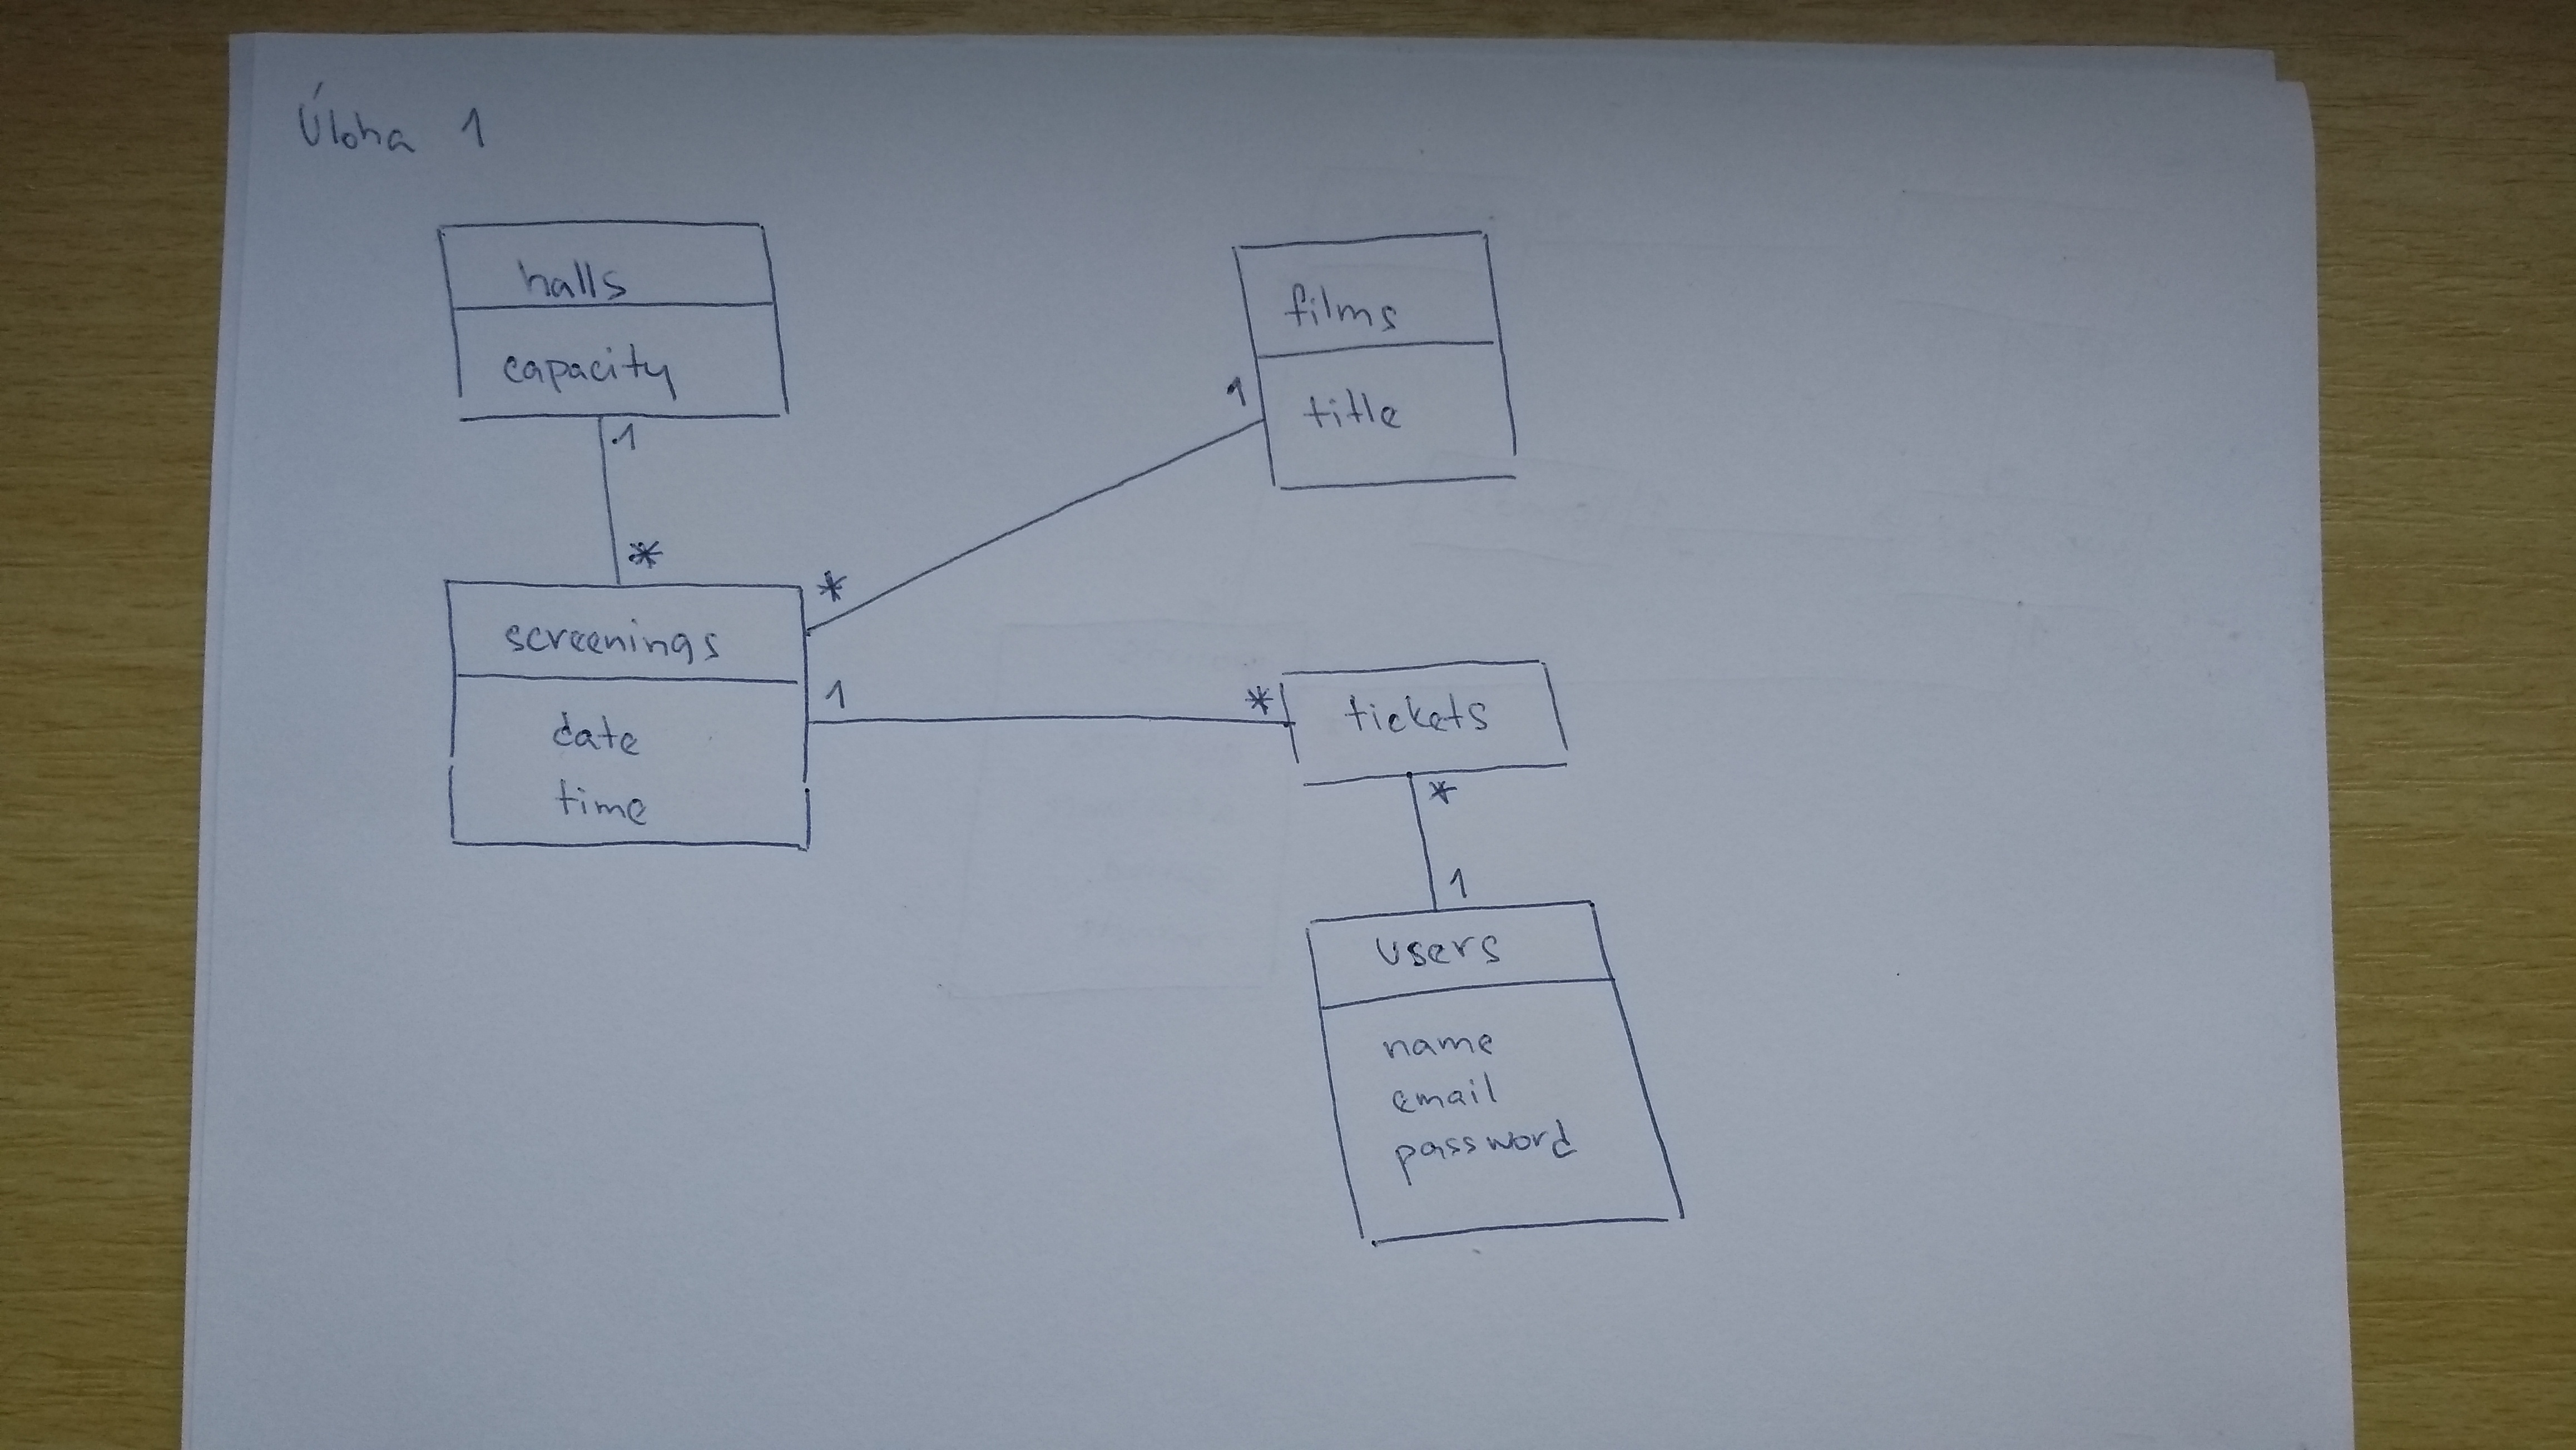 Úloha 1
halls
capacity
1
*
films
title
1
*
screenings
date
time
1
*
tickets
*
1
users
name
email
password